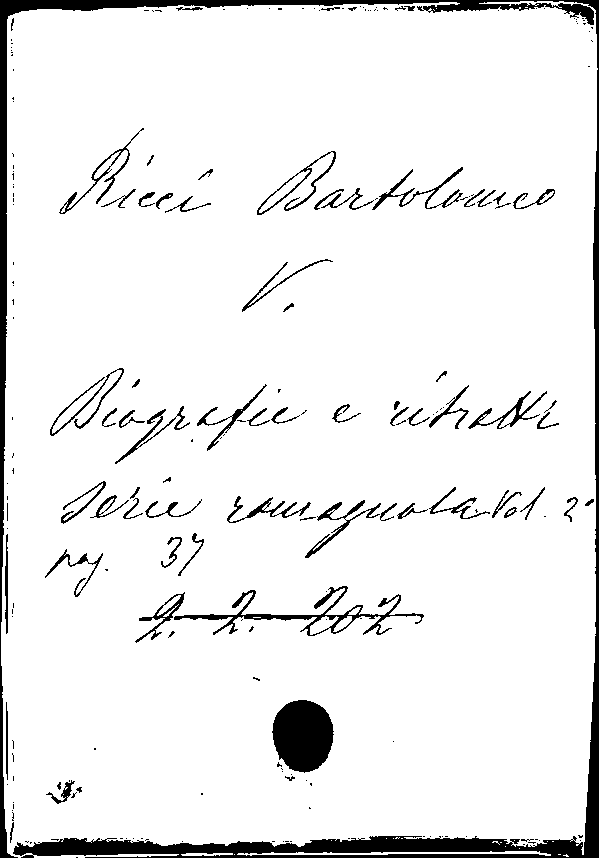 Ricci Bartolomeo
V.
Biografie e ritratti
serie romagnola Vol. 2°
pag. 37
2. 2. 202